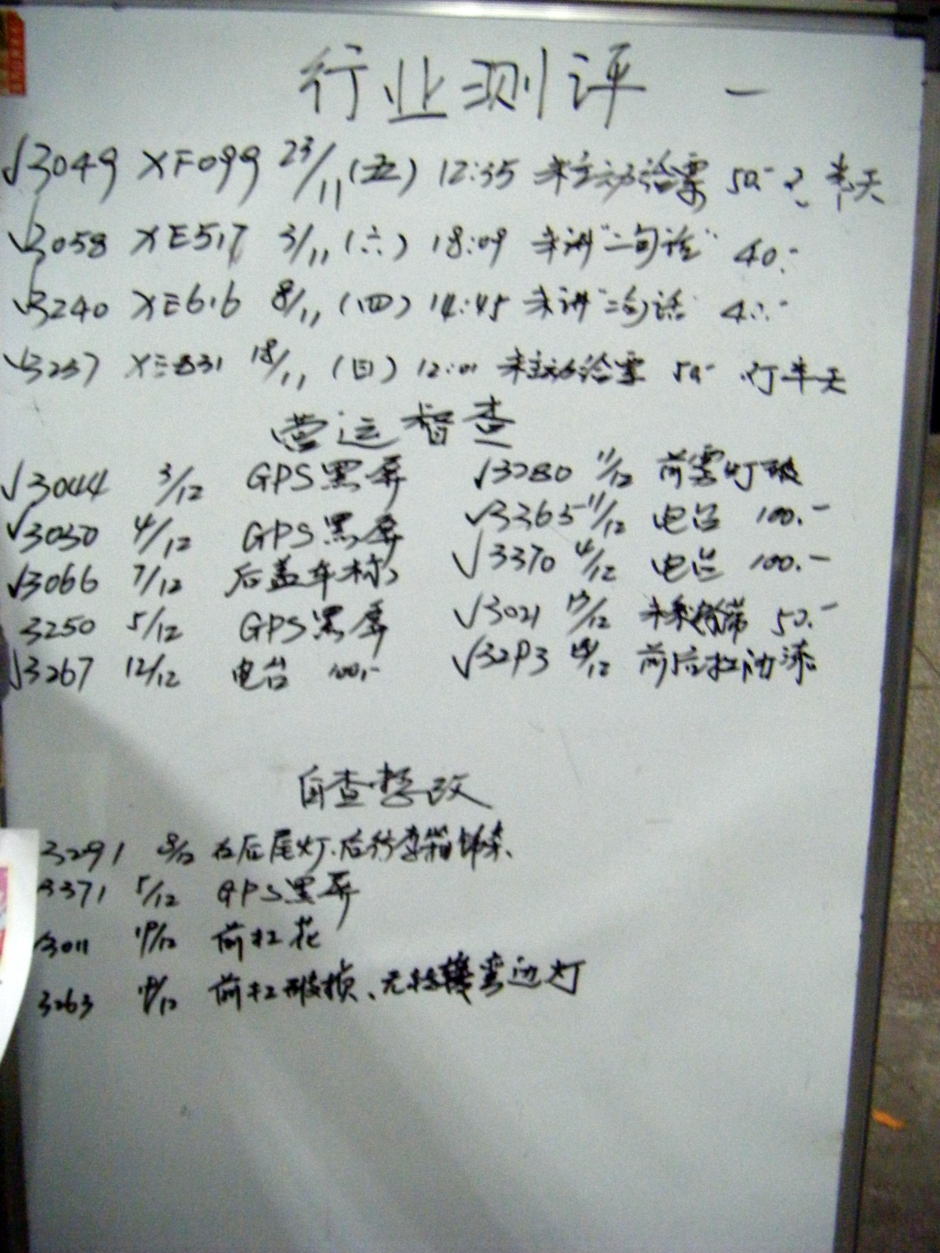 行业测评 一
√3049 XF099 23/11 (五) 12:35 未主动给票 50.- 2.半天
√3058 XE517 3/11 (六) 18:09 未讲"二句话" 40.-
√3240 XE616 8/11 (四) 14:45 未讲"二句话" 40.-
√3237 831 18/11 (日) 12:01 未主动给票 50.- 半天
营运督查
√3044 3/12 GPS黑屏 √3280 11/12 前雾灯破
√3030 4/12 GPS黑屏 √3365 11/12 电台 100.-
√3066 7/12 后盖车标 √3370 4/12 电台 100.-
3250 5/12 GPS黑屏 √3021 /12 未 带 50.-
√3267 12/12 电台 100.- √3293 /12 前后杠油漆
自查整改
3291 8/12 右后尾灯、后行李箱
3371 5/12 GPS黑屏
3011 19/12 前杠花
3263 /12 前杠破损、无转弯边灯